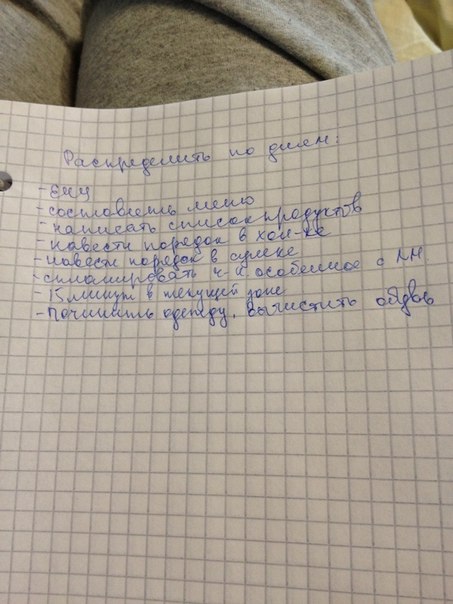 Распределить по дням:
- ЕЧЦ
- составить меню
- написать список продуктов
- навести порядок в хол-ке
- навести порядок в сумке
- спланировать ч-н особенное с МН
- 15 минут в текущей зоне
- Починить одежду, вычистить обувь